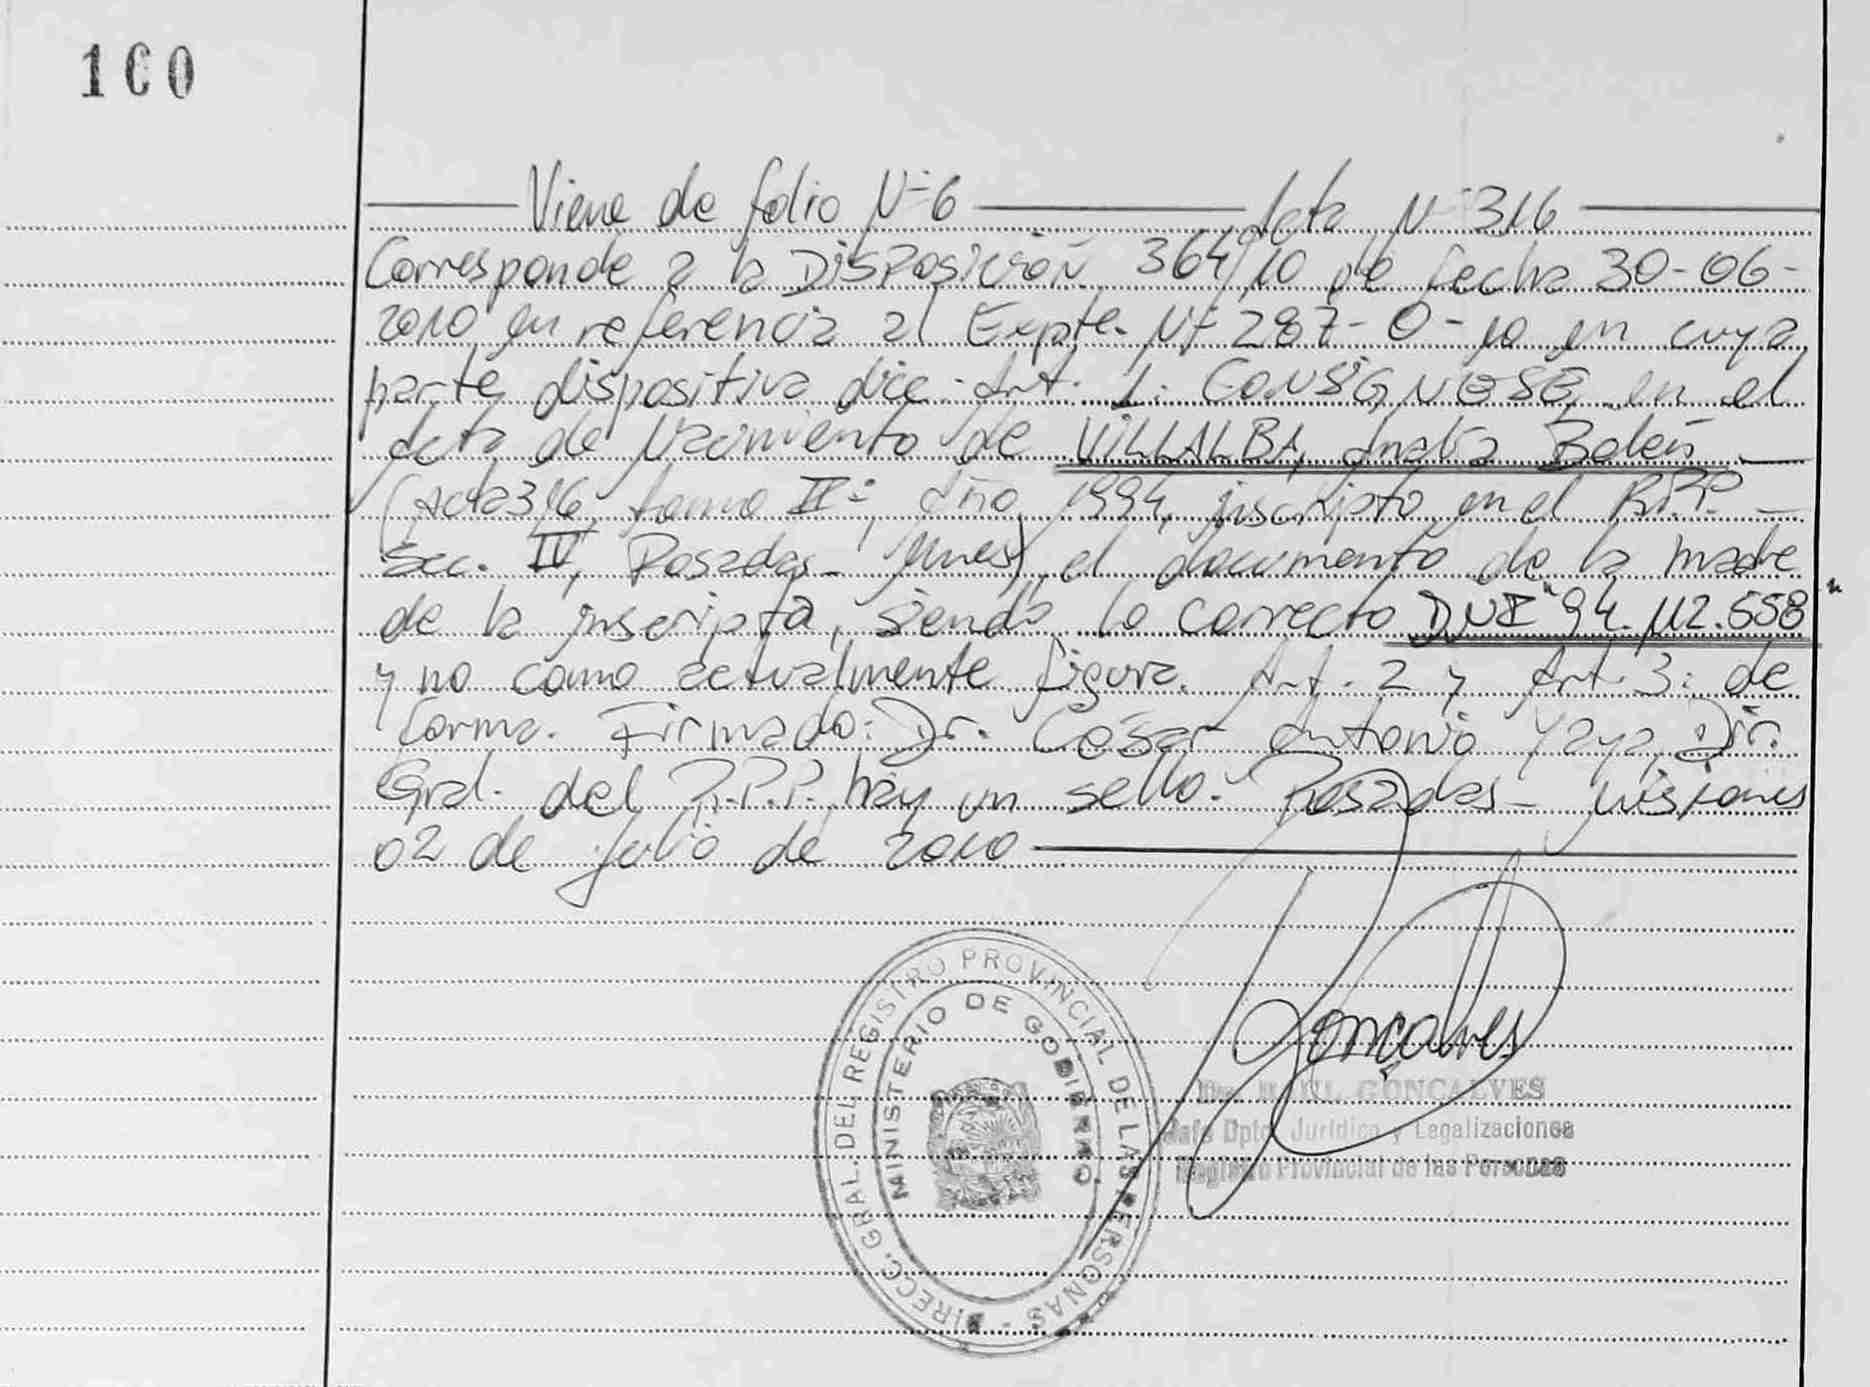 160
Viene de folio Nº 6 Acta Nº 316
Corresponde a la DISPOSICIÓN 364/10 de fecha 30-06-
2010 en referencia al Expte. Nº 287-O-10 en cuya
parte dispositiva dice: Art. 1: CONSIGNESE en el
Acta de Nacimiento de VILLALBA, Analía Belén
(Acta 316, tomo IIº, Año 1994, inscripto en el R.P.P.
Sec. IV, Posadas - Mnes) el documento de la madre
de la inscripta, siendo lo correcto DNI "94.112.558"
y no como actualmente figura. Art. 2 y Art. 3: de
forma. Firmado: Dr. César Antonio Yaya, Dir.
Gral. del R.P.P. hay un sello. Posadas - Misiones
02 de julio de 2010
Goncalves
GONCALVES
Jefe Dpto. Jurídico y Legalizaciones
Registro Provincial de las Personas
DIRECC. GRAL. DEL REGISTRO PROVINCIAL DE LAS PERSONAS -
MINISTERIO DE GOBIERNO.